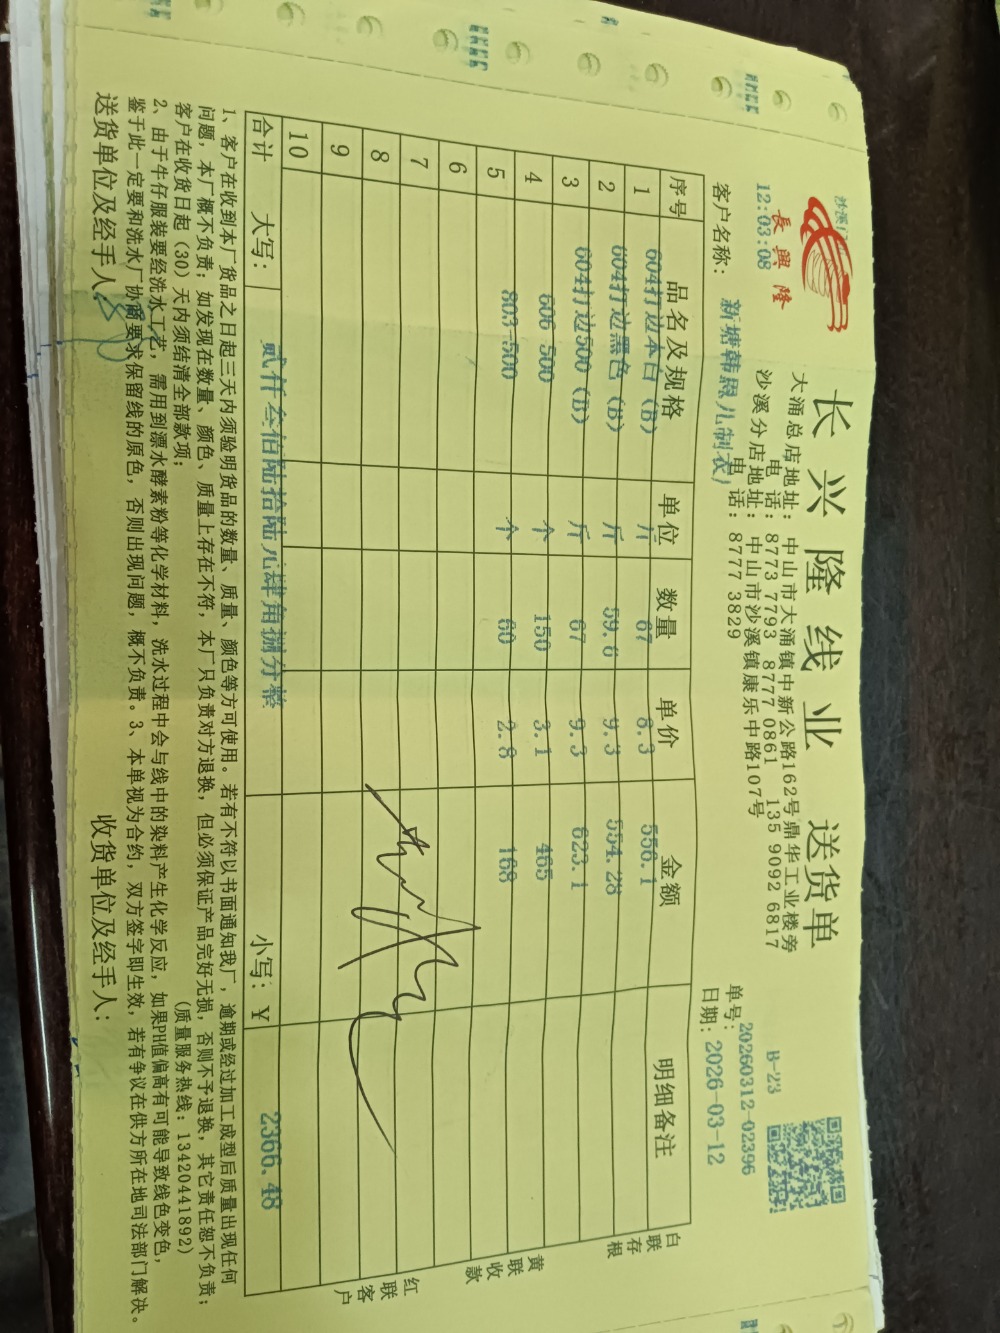 長興隆
长兴隆线业 送货单
大涌总店地址：中山市大涌镇中新公路162号鼎华工业楼旁
电话：8773 7793 8777 0861 135 9092 6817
沙溪分店地址：中山市沙溪镇康乐中路107号
电话：8777 3829
B-23
12:03:08
单号：20260312-02396
客户名称：新塘韩恩儿制衣
日期：2026-03-12
序号 品名及规格 单位 数量 单价 金额 明细备注
1 604打边本白（B） 斤 67 8.3 556.1
2 604打边黑色（B） 斤 59.6 9.3 554.28
3 604打边500（B） 斤 67 9.3 623.1
4 606 500 个 150 3.1 465
5 803-500 个 60 2.8 168
6
7
8
9
10
合计 大写：贰仟叁佰陆拾陆元肆角捌分整 小写：￥ 2366.48
白联存根
黄联收款
红联客户
1、客户在收到本厂货品之日起三天内须验明货品的数量、质量、颜色等方可使用。若有不符以书面通知我厂，逾期或经过加工成型后质量出现任何
问题，本厂概不负责；如发现在数量、颜色、质量上存在不符，本厂只负责对方退换，但必须保证产品完好无损，否则不予退换，其它责任恕不负责；
客户在收货日起（30）天内须结清全部款项；（质量服务热线：13420441892）
2、由于牛仔服装要经洗水工艺，需用到漂水酵素粉等化学材料，洗水过程中会与线中的染料产生化学反应，如果PH值偏高有可能导致线色变色，
鉴于此一定要和洗水厂协商要求保留线的原色，否则出现问题，概不负责。3、本单视为合约，双方签字即生效，若有争议在供方所在地司法部门解决。
送货单位及经手人： 收货单位及经手人：